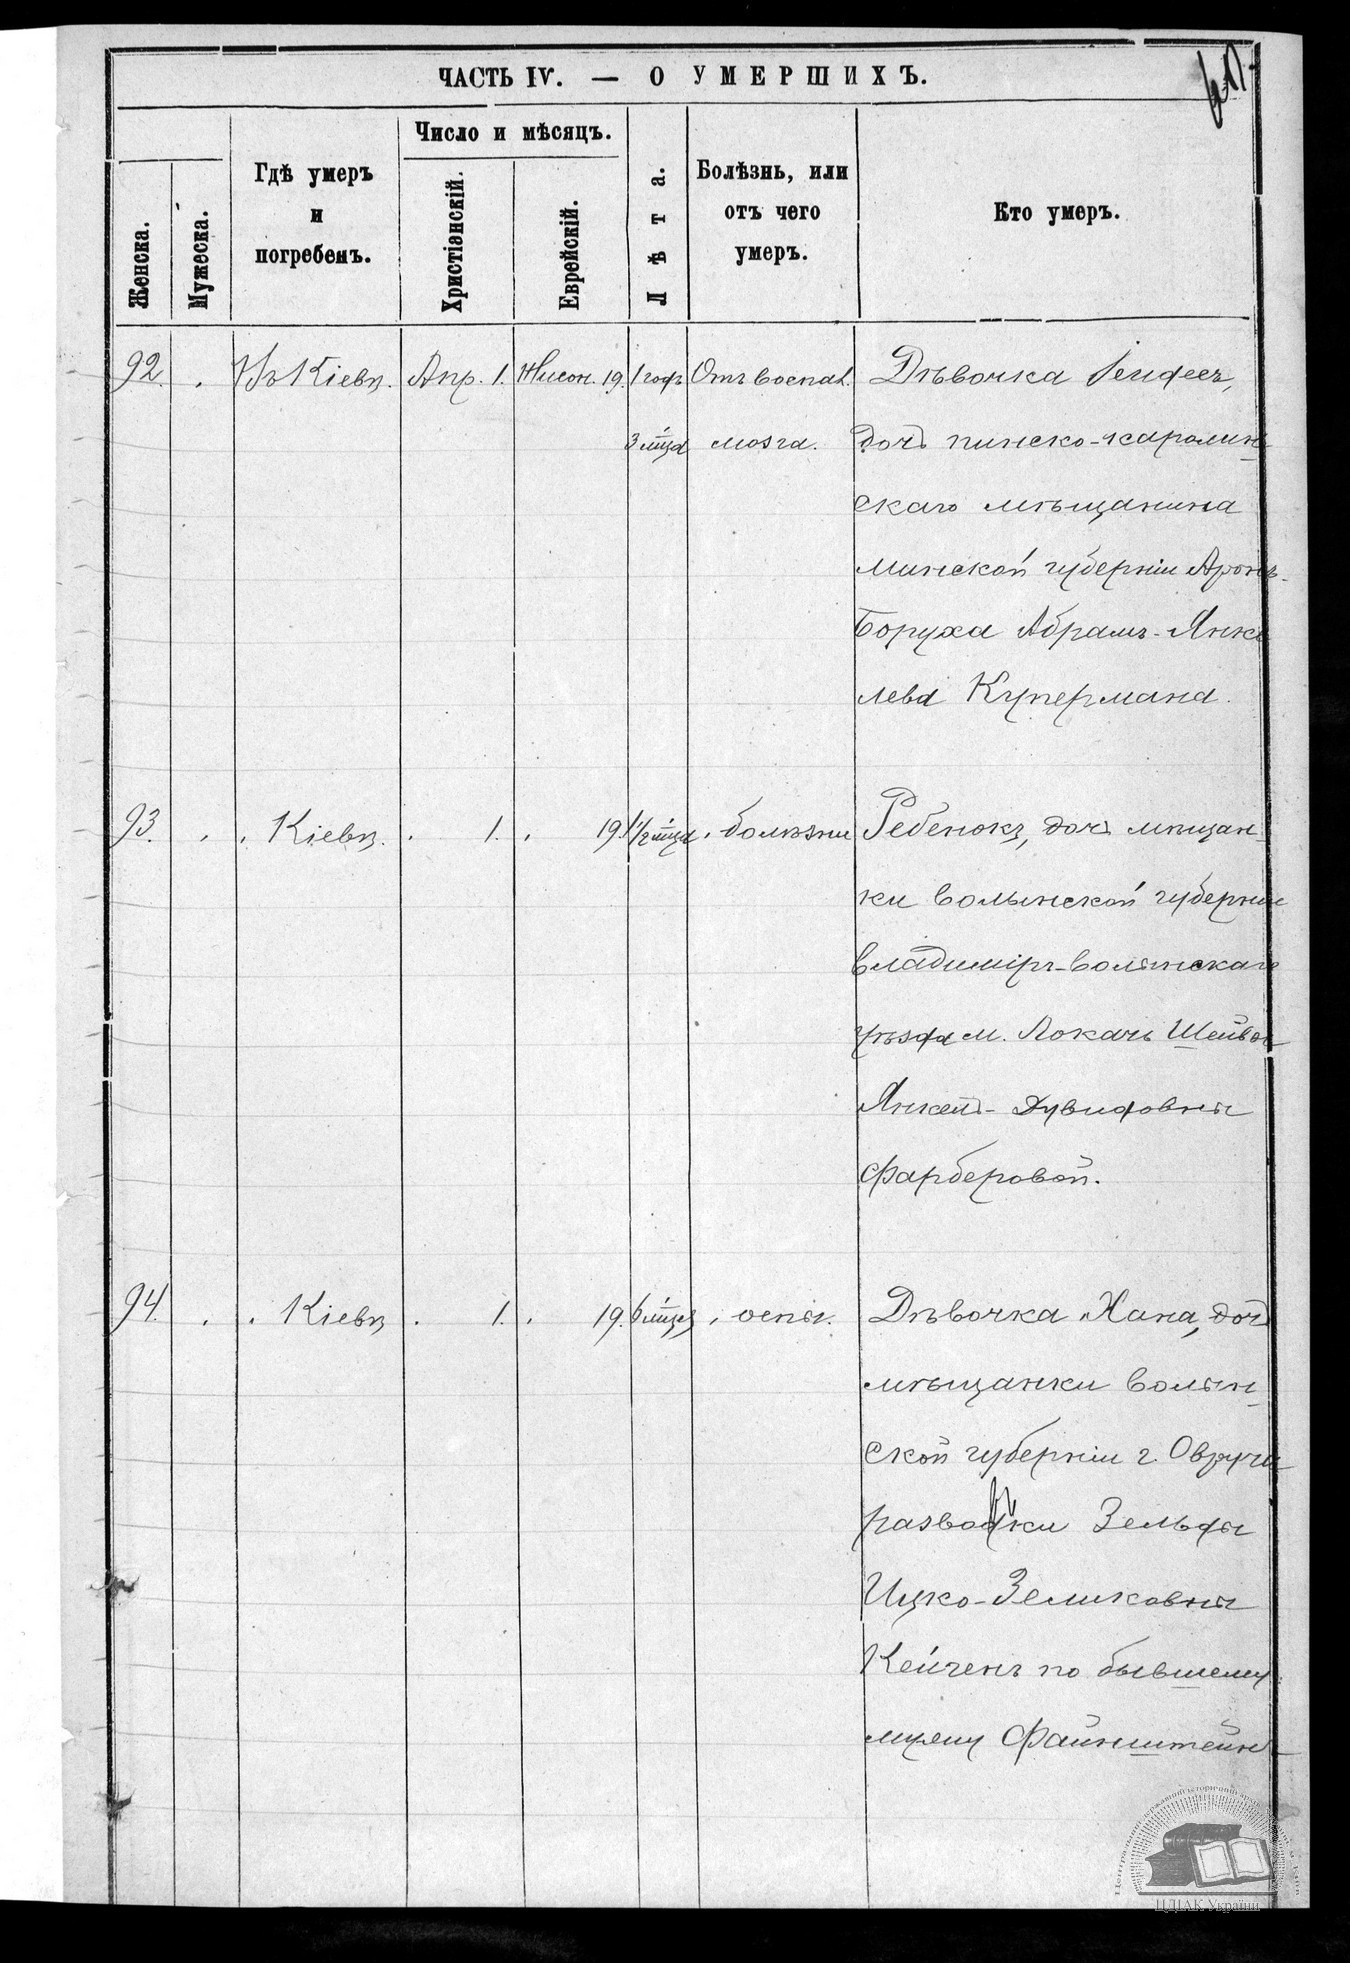 ЧАСТЬ IV. — О УМЕРШИХЪ.
Женска.
Мужеска.
Гдѣ умеръ
и
погребенъ.
Число и мѣсяцъ.
Христіанскій.
Еврейскій.
Лѣта.
Болѣзнь, или
отъ чего
умеръ.
Кто умеръ.
92. Въ Кіевѣ. Апр. 1. Нисон. 19. 1 годъ Отъ воспал. Дѣвочка
3 мѣца мозга. дочь пинско-каролин-
скаго мѣщанина
минской губерніи Аронъ-
Боруха Абрамъ-Янке
лева Купермана.
93. Кіевѣ. 1. 19. 1 1/2 мѣца болѣзни Ребенокъ, дочь мѣщан-
ки волынской губерніи
Владиміръ-волынскаго
уѣзда м. Локачь Шейвы
Янкель-Дувидовны
Фарберовой.
94. Кіевѣ 1. 19. 6 мѣцев оспы. Дѣвочка Хана, дочь
мѣщанки волын-
ской губерніи г. Овруча
разводки Зельды
Ицко-Зеликовны
Кейченъ по бывшему
мужу Файнштейн-
ЦДІАК України